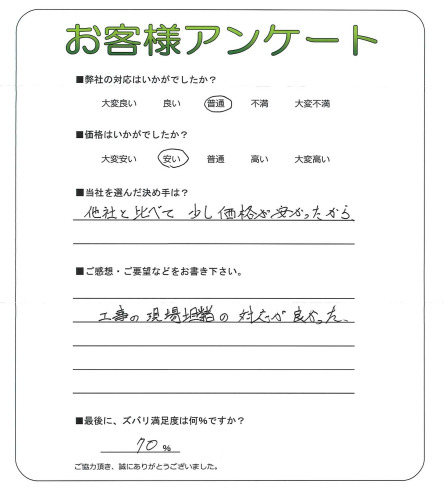 お客様アンケート
■弊社の対応はいかがでしたか？
大変良い 良い 普通 不満 大変不満
■価格はいかがでしたか？
大変安い 安い 普通 高い 大変高い
■当社を選んだ決め手は？
他社と比べて 少し価格が安かったから
■ご感想・ご要望などをお書き下さい。
工事の現場担当の対応が良かった、
■最後に、ズバリ満足度は何％ですか？
70 %
ご協力頂き、誠にありがとうございました。